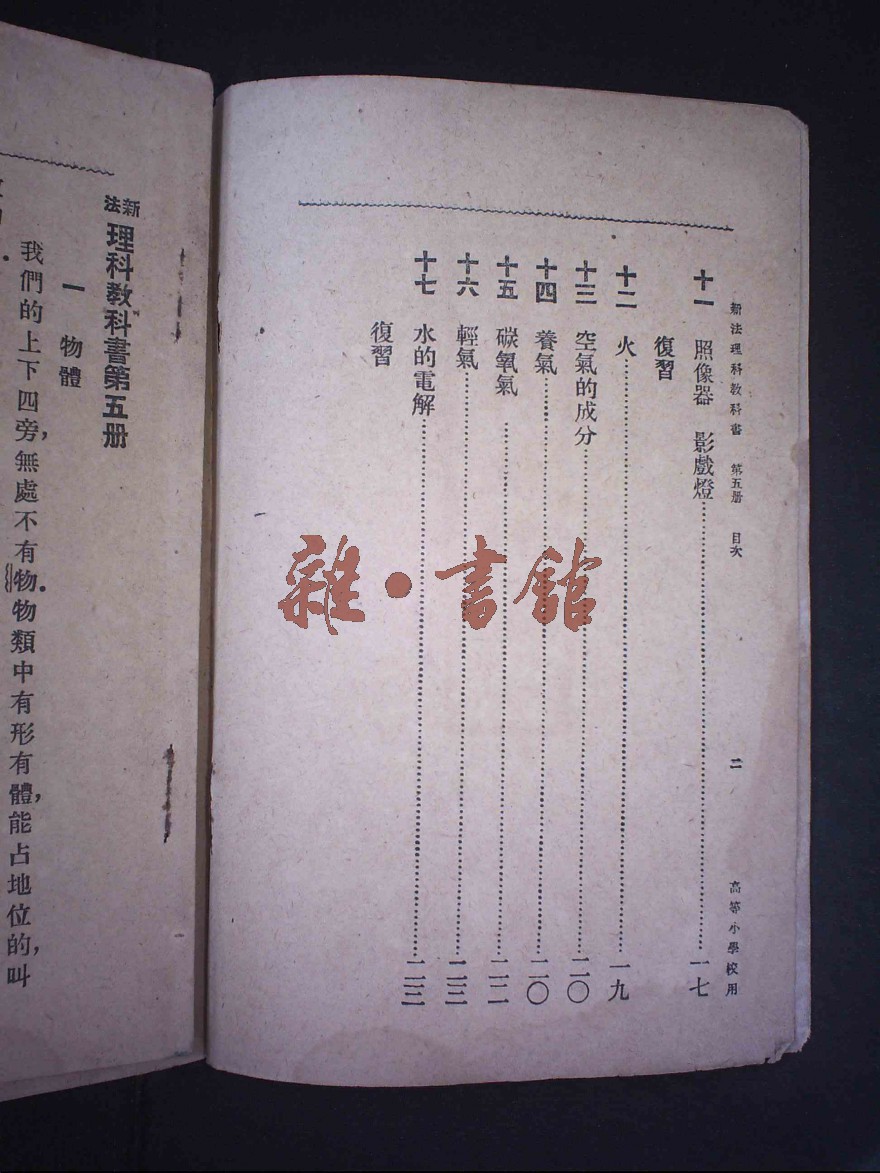 新法理科教科書 第五册 目次 二 高等小學校用
十一 照像器 影戲燈……一七
復習
十二 火……一九
十三 空氣的成分……二〇
十四 養氣……二〇
十五 碳氧氣……二二
十六 輕氣……二三
十七 水的電解……二三
復習
雜·書館
新法理科教科書第五册
一 物體
我們的上下四旁,無處不有物物類中有形有體,能占地位的,叫